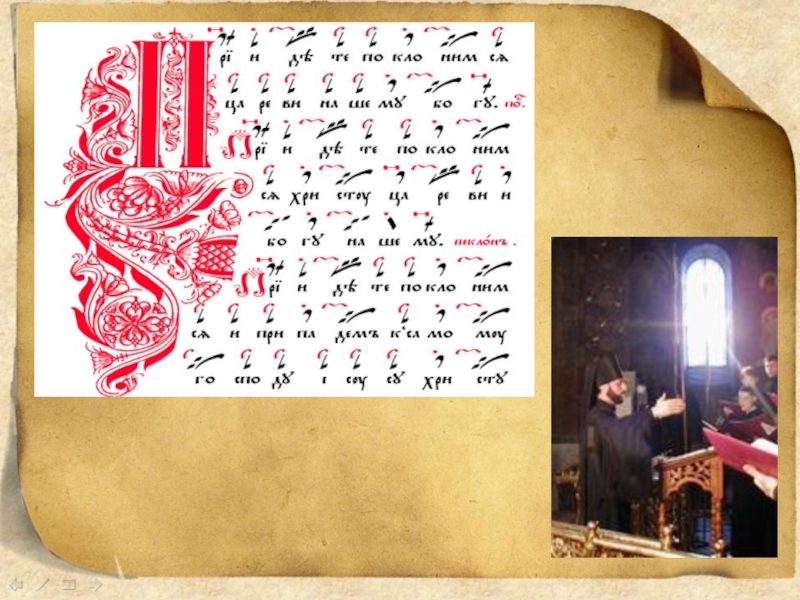 Прїи дѣ те по кло ним ся
ца ре ви на ше му бо гу. по҇.
Прїи дѣ те по кло ним
ся хри стоу ца ре ви и
бо гу на ше му. пикло́нъ.
Прїи дѣ те по кло ним
ся и при па демъ к'са мо моу
го спо ду і соу су хри сту